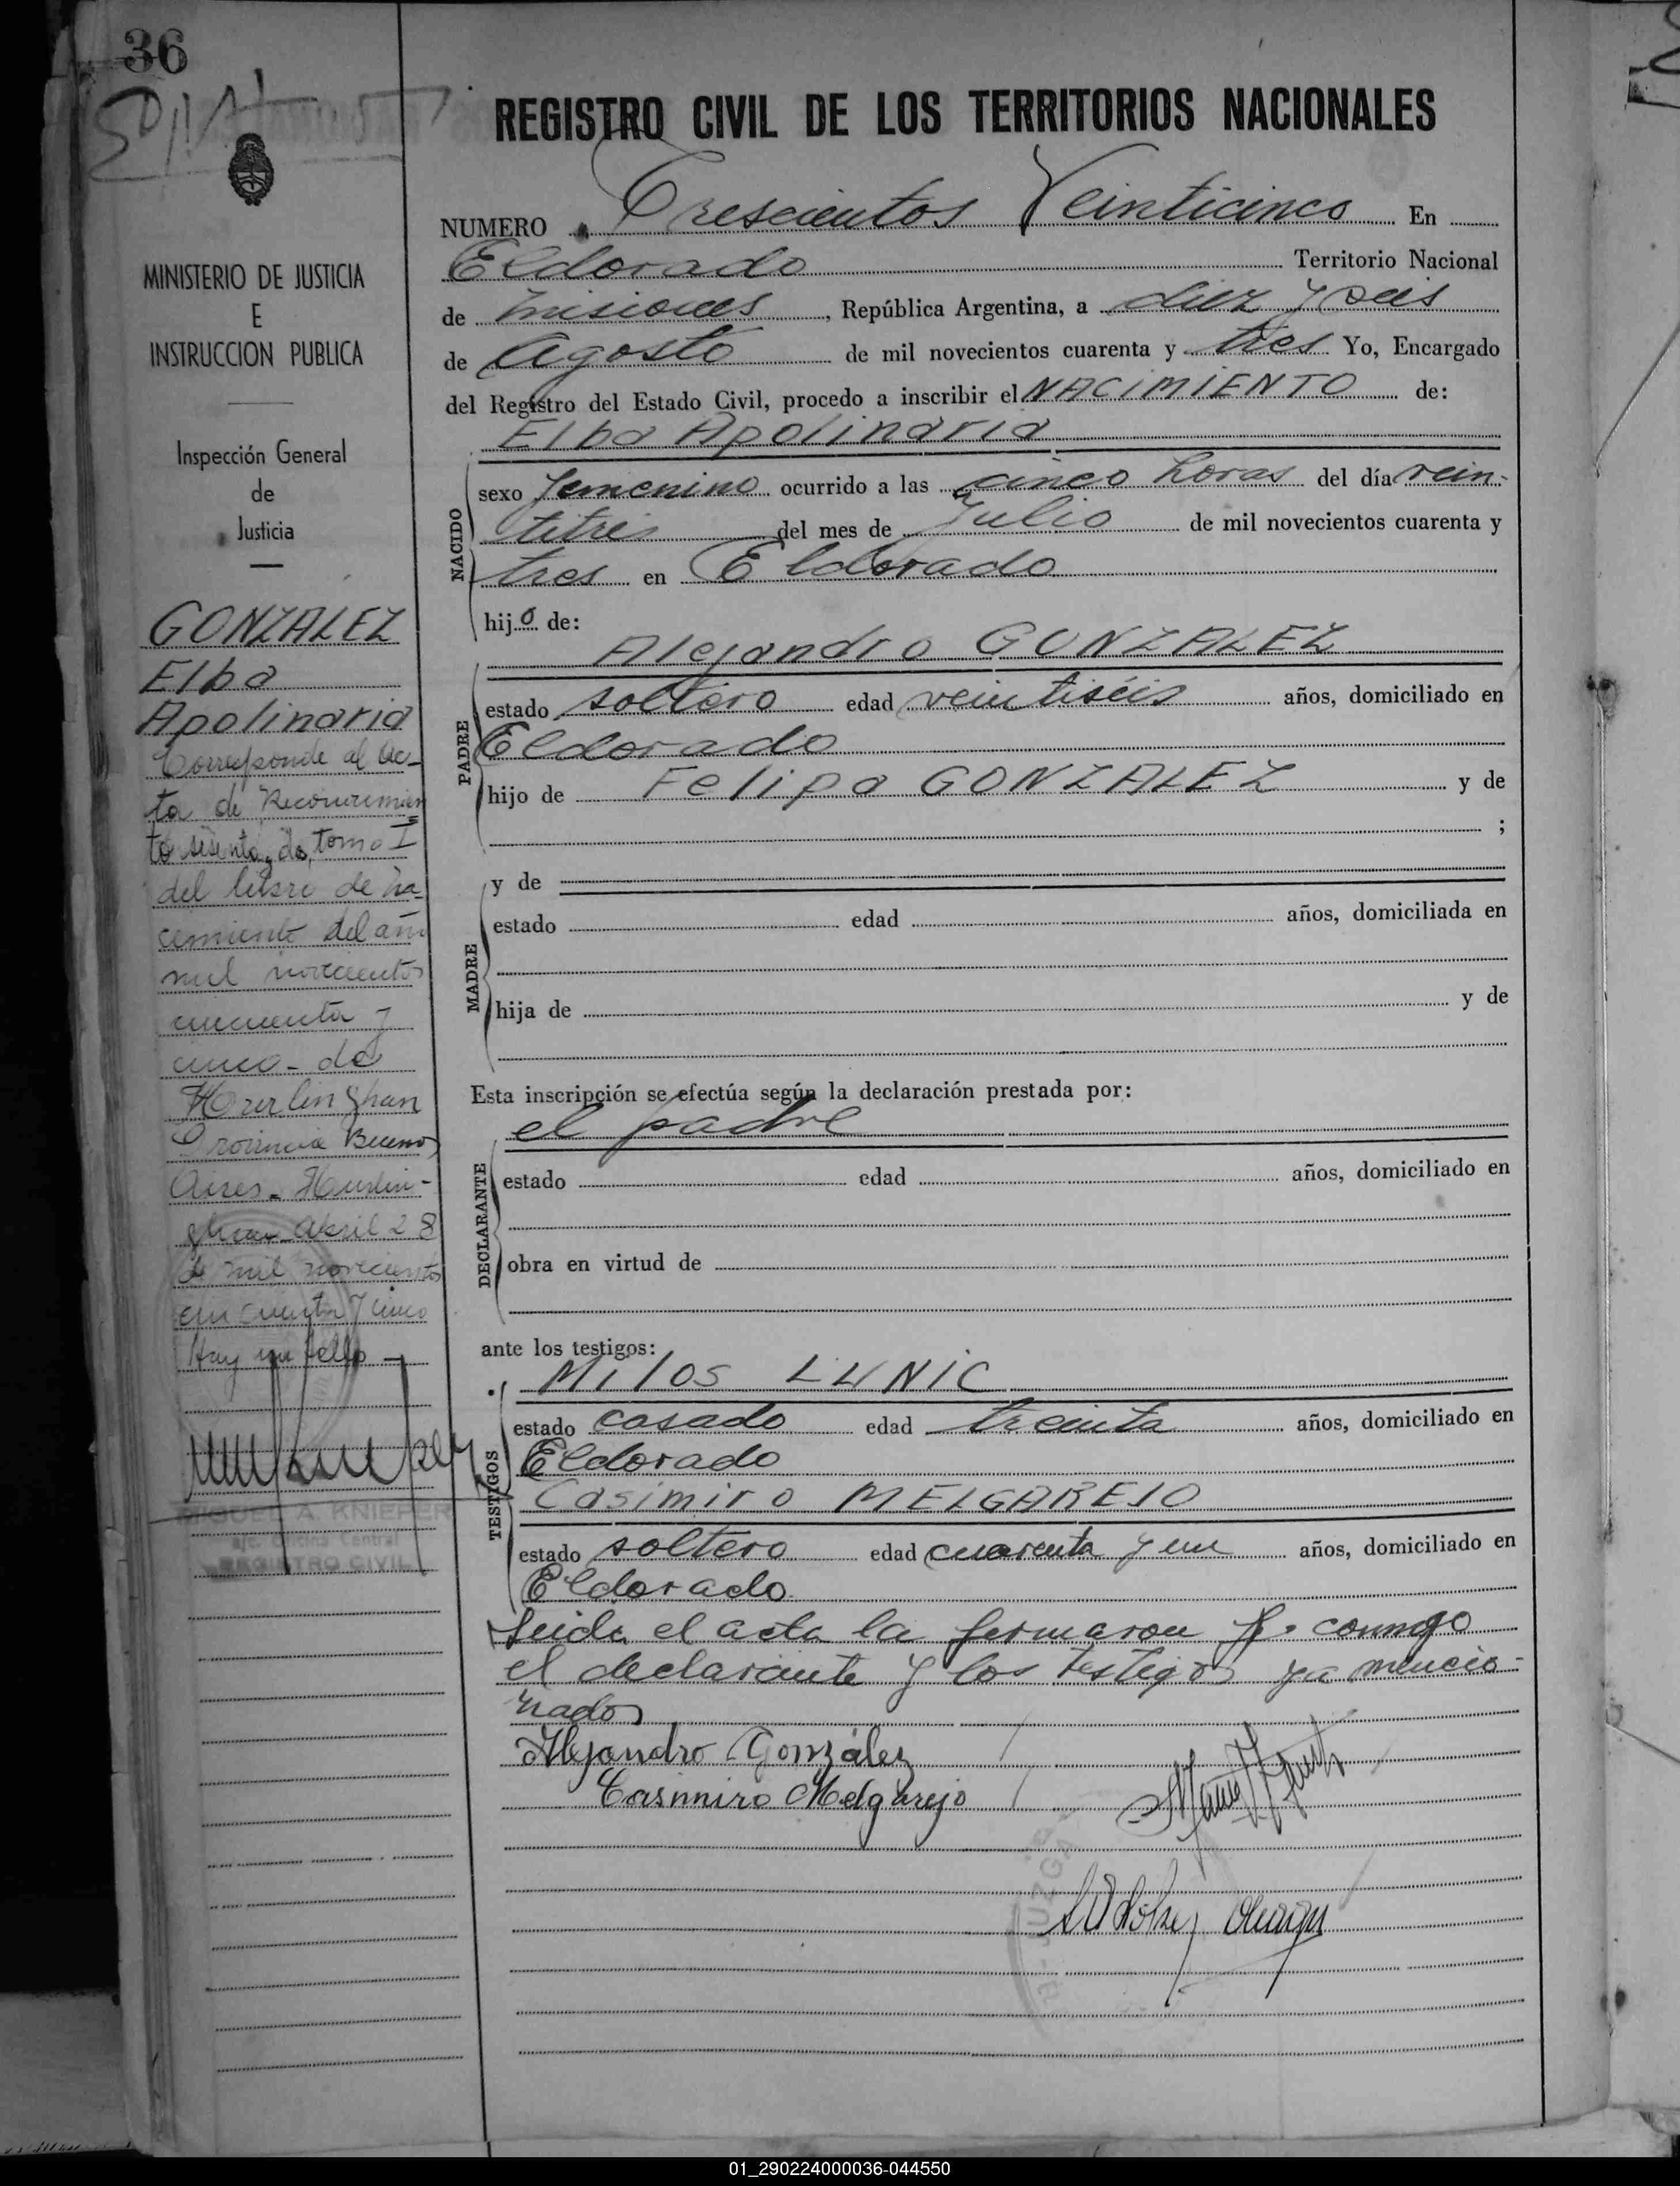 36
MINISTERIO DE JUSTICIA
E
INSTRUCCION PUBLICA
Inspección General
de
Justicia
GONZALEZ
Elba
Apolinaria
Corresponde al ac-
ta de Reconocimien
to sesenta y dos, tomo I
del libro de na-
cimiento del año
mil novecientos
cincuenta y
cinco - de
Hurlinghan
Provincia Buenos
Aires - Hurlin-
ghan - abril 28
de mil novecientos
cincuenta y cinco
Hay un sello -
MIGUEL A. KNIEPER
Oficina Central
REGISTRO CIVIL
REGISTRO CIVIL DE LOS TERRITORIOS NACIONALES
NUMERO Trescientos Veinticinco En
Eldorado Territorio Nacional
de Misiones, República Argentina, a diez y seis
de Agosto de mil novecientos cuarenta y tres Yo, Encargado
del Registro del Estado Civil, procedo a inscribir el NACIMIENTO de:
Elba Apolinaria
NACIDO
sexo femenino ocurrido a las cinco horas del día vein-
titres del mes de Julio de mil novecientos cuarenta y
tres en Eldorado
hij de:
Alejandro GONZALEZ
PADRE
estado soltero edad veintiséis años, domiciliado en
Eldorado
hijo de Felipa GONZALEZ y de
;
y de
MADRE
estado edad años, domiciliada en
hija de y de
Esta inscripción se efectúa según la declaración prestada por:
el padre
DECLARANTE
estado edad años, domiciliado en
obra en virtud de
ante los testigos:
Milos LUNIC
TESTIGOS
estado casado edad treinta años, domiciliado en
Eldorado
Casimiro MELGAREJO
estado soltero edad cuarenta y un años, domiciliado en
Eldorado
Leida el acta la firmaron conmigo
el declarante y los testigos ya mencio-
nados
Alejandro González
Casimiro Melgarejo
01_290224000036-044550